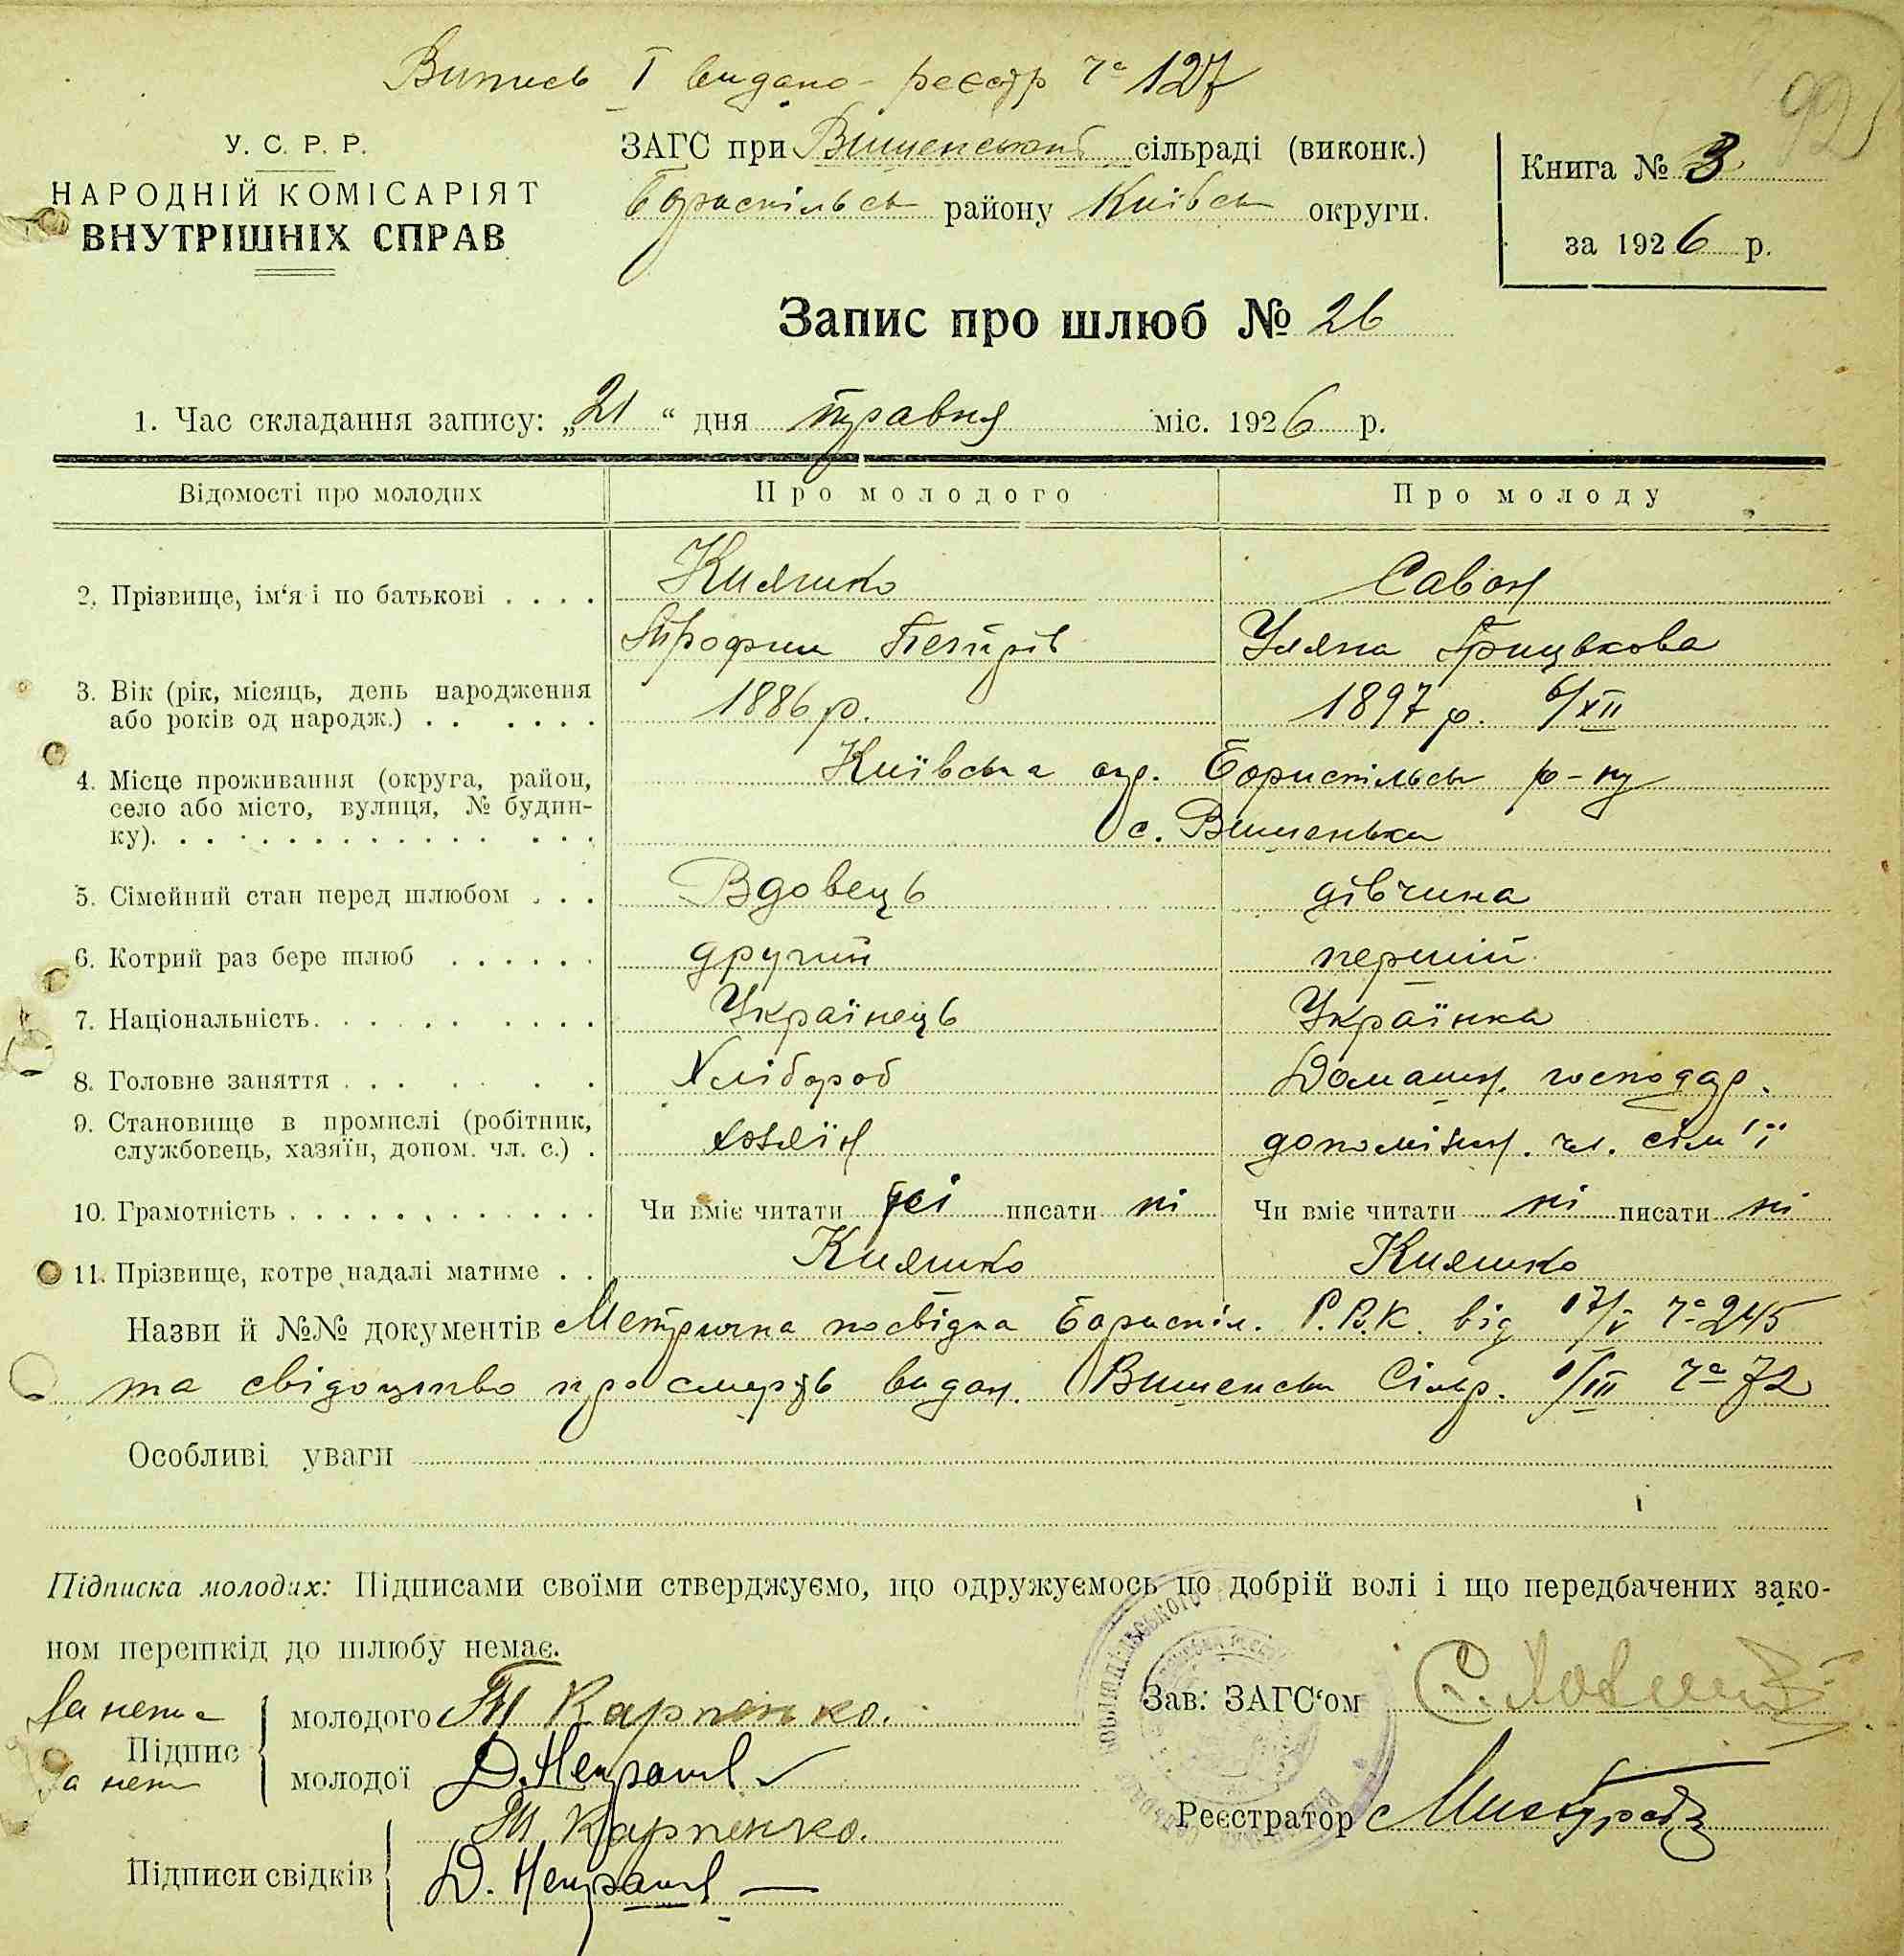 Випись I видано - реєстр ч° 127
92
У. С. Р. Р.
НАРОДНІЙ КОМІСАРІЯТ
ВНУТРІШНІХ СПРАВ
ЗАГС при Вишенській сільраді (виконк.)
Бориспільськ району Київськ округи.
Книга № 3
за 1926 р.
Запис про шлюб № 26
1. Час складання запису: „21“ дня травня міс. 1926 р.
Відомості про молодих
Про молодого
Про молоду
2. Прізвище, ім‘я і по батькові . . . .
Кияшко
Савон
Трофим Петрів
Уляна Грицькова
3. Вік (рік, місяць, день народження
або років од народж.) . . . . . .
1886 р.
1897 р. 6/XII
4. Місце проживання (округа, район,
село або місто, вулиця, № будин-
ку). . . . . . . . . . . . . . .
Київська окр. Бориспільськ р-ну
с. Вишенька
5. Сімейний стан перед шлюбом . . .
Вдовець
дівчина
6. Котрий раз бере шлюб . . . . . .
другий
перший
7. Національність. . . . . . . . . .
Українець
Українка
8. Головне заняття . . . . . . .
Хлібороб
Домашн. господар.
9. Становище в промислі (робітник,
службовець, хазяїн, допом. чл. с.) .
хозяїн
допоміжн. чл. сім'ї
10. Грамотність . . . . . . . . . . . .
Чи вміє читати ні писати ні
Чи вміє читати ні писати ні
11. Прізвище, котре надалі матиме . .
Кияшко
Кияшко
Назви й №№ документів Метрична посвідка Бориспіл. Р.В.К. від 17/V ч° 245
та свідоцтво про смерть видан. Вишенськ Сільр. 1/III ч° 72
Особливі уваги
Підписка молодих: Підписами своїми стверджуємо, що одружуємось по добрій волі і що передбачених зако-
ном перешкід до шлюбу немає.
За непис
Підпис
За неп
молодого Т Карпенко.
молодої
Зав. ЗАГС‘ом
Реєстратор
Підписи свідків
Т Карпенко.